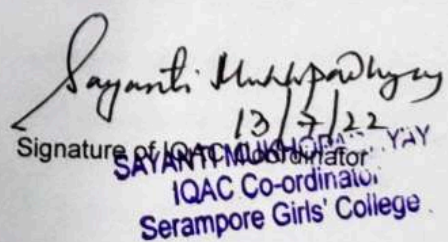 Sayanti Mukhopadhyay
13/7/22
Signature of IQAC Coordinator
SAYANTI MUKHOPADHYAY
IQAC Co-ordinator
Serampore Girls' College